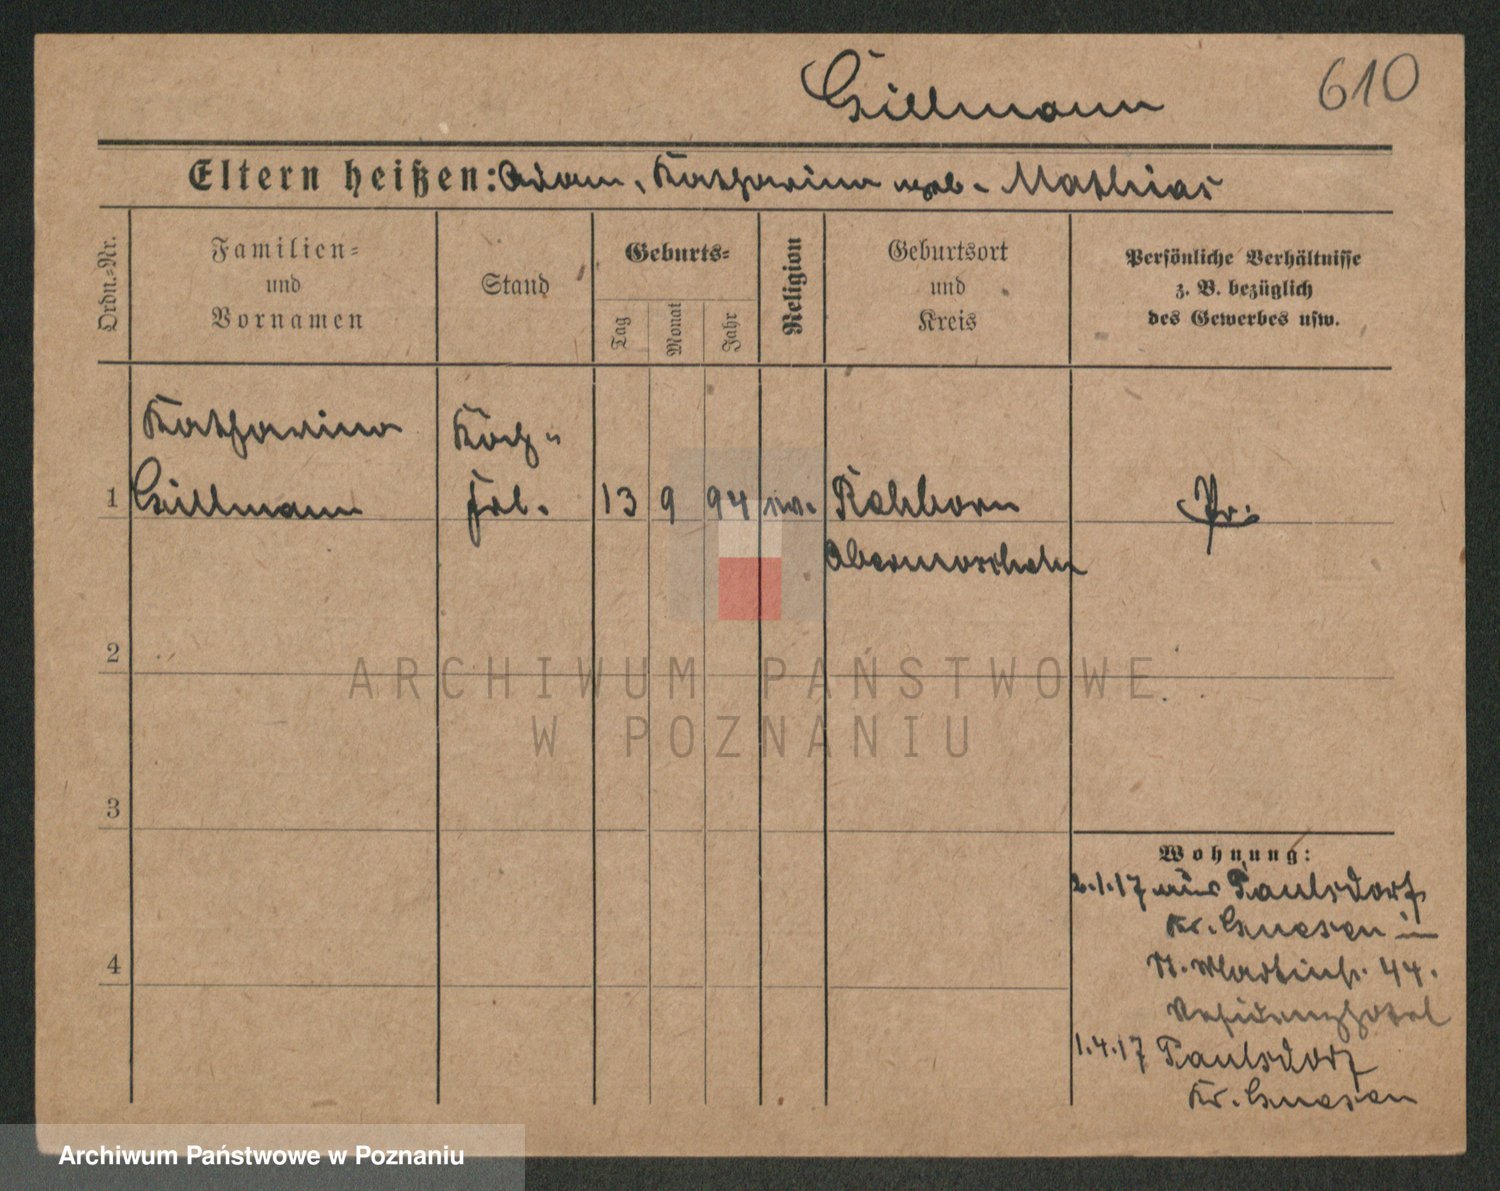 Gillmann
610
Eltern heißen: Adam, Katharina geb. Mathias
Ordn.-Nr.
Familien-
und
Vornamen
Stand
Geburts-
Tag
Monat
Jahr
Religion
Geburtsort
und
Kreis
Persönliche Verhältnisse
z. B. bezüglich
des Gewerbes usw.
1
Katharina
Gillmann
Koch-
frl.
13
9
94
ev.
Rehborn
Obermoschel
Pr.
2
3
4
Wohnung:
2.1.17 aus Paulsdorf
Kr. Gnesen in
St. Martinstr. 44.
Residenzhotel
1.4.17 Paulsdorf
Kr. Gnesen
ARCHIWUM PAŃSTWOWE
W POZNANIU
Archiwum Państwowe w Poznaniu